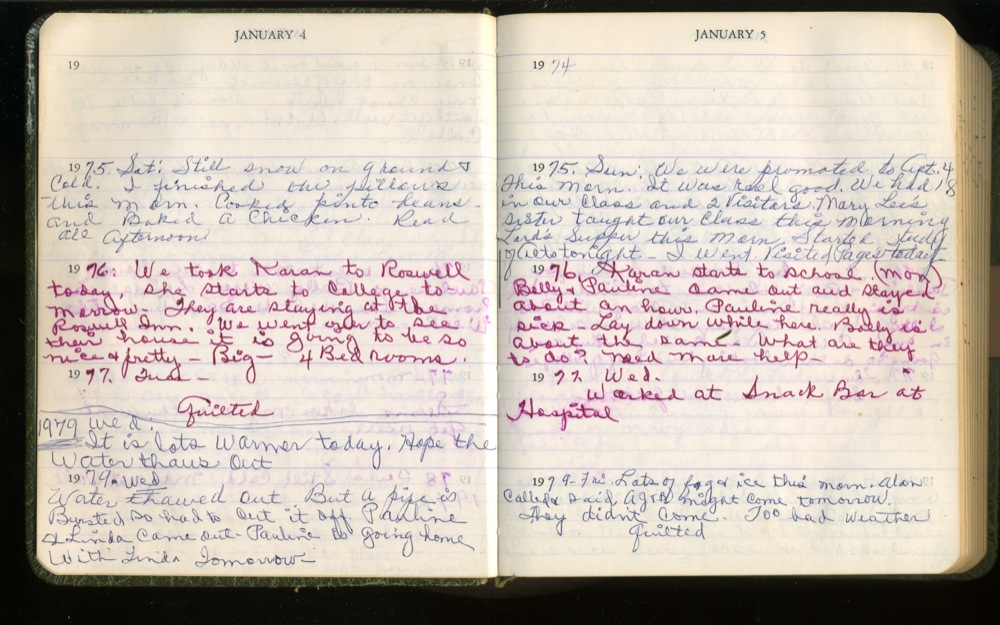 JANUARY 4
19
1975. Sat: Still snow on ground &
Cold. I finished the pillows
this morn. Cooked pinto beans -
and Baked a Chicken. Read
all Afternoon
1976. We took Karan to Roswell
today, she starts to College to
morrow - They are staying at the
Roswell Inn. We went over to see
their house it is going to be so
nice & pretty - Big - 4 Bed rooms.
1977. Tues -
Quilted
1979 Wed.
It is lots Warmer today. Hope the
Water thaus Out
1979. Wed
Water thawed out But a pipe is
Bursted so had to cut it off Pauline
& Linda Came out Pauline is going home
With Linda Tomorrow -
JANUARY 5
1974
1975. Sun: We were promoted to Dpt. 4
this morn. It was real good. We had 18
in our Class and 2 Visitors. Mary Lou's
sister taught our Class this Morning
Lord's Supper this Morn. Started Study
of Acts tonight - I went Visited Pages today -
1976. Karan starts to school. (Mon)
Billy & Pauline Came out and stayed
about an hour. Pauline really is
sick - Lay down while here. Billy is
about the same. What are they
to do? Need more help -
1977. Wed.
Worked at Snack Bar at
Hospital
1979 - Fri. Lots of fog & ice this morn. Alon
Called & said A.J. & might Come tomorrow.
They didn't Come. Too bad weather
Quilted